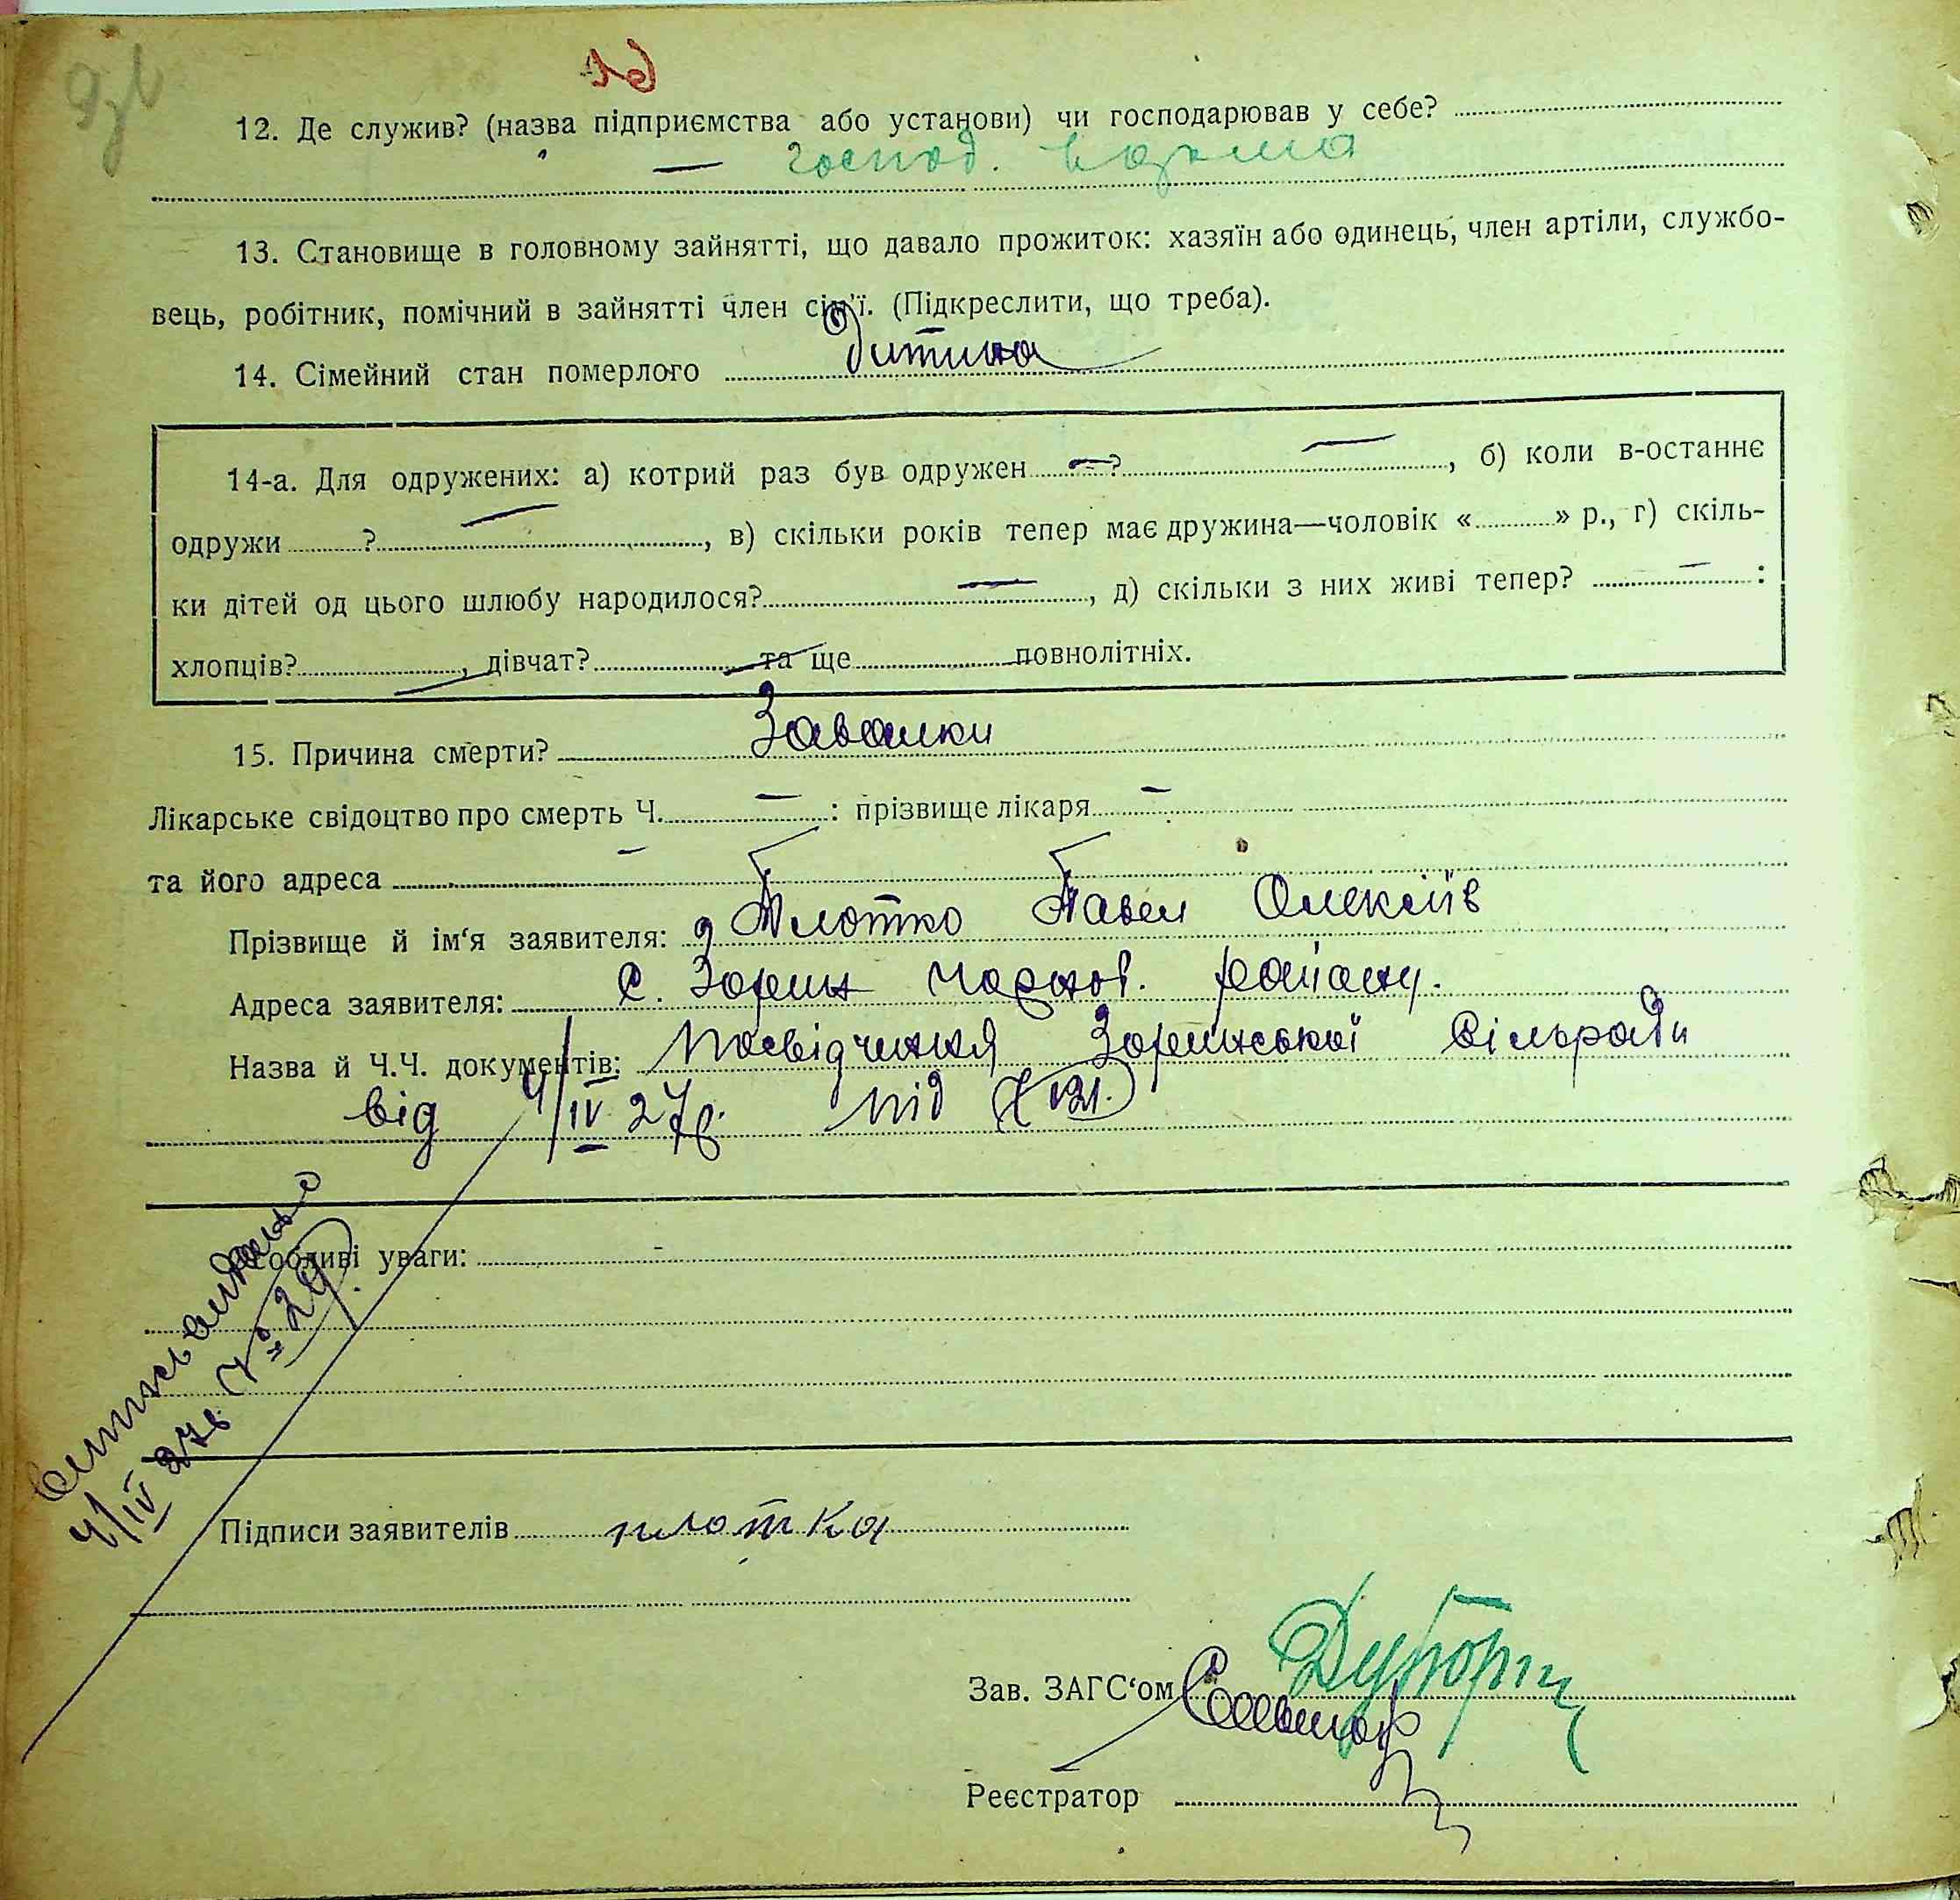 12. Де служив? (назва підприємства або установи) чи господарював у себе?
— господ.
13. Становище в головному зайнятті, що давало прожиток: хазяїн або одинець, член артіли, службо-
вець, робітник, помічний в зайнятті член сім'ї. (Підкреслити, що треба).
14. Сімейний стан померлого Дитина
14-а. Для одружених: а) котрий раз був одружен — ? —, б) коли в-останнє
одружи ? —, в) скільки років тепер має дружина—чоловік « » р., г) скіль-
ки дітей од цього шлюбу народилося? —, д) скільки з них живі тепер? — :
хлопців? , дівчат? та ще повнолітніх.
15. Причина смерти? Завалки
Лікарське свідоцтво про смерть Ч. — : прізвище лікаря —
та його адреса —
Прізвище й ім'я заявителя: Плотко Павел Олексіїв
Адреса заявителя: с. Зорин Чорноб. району.
Назва й Ч.Ч. документів: посвідчиння Зоринської Сільради
від 4/IV 27р. під № 121.
Особливі уваги: -
4/IV 27р. № 29
Підписи заявителів плотка
Зав. ЗАГС'ом
Реєстратор